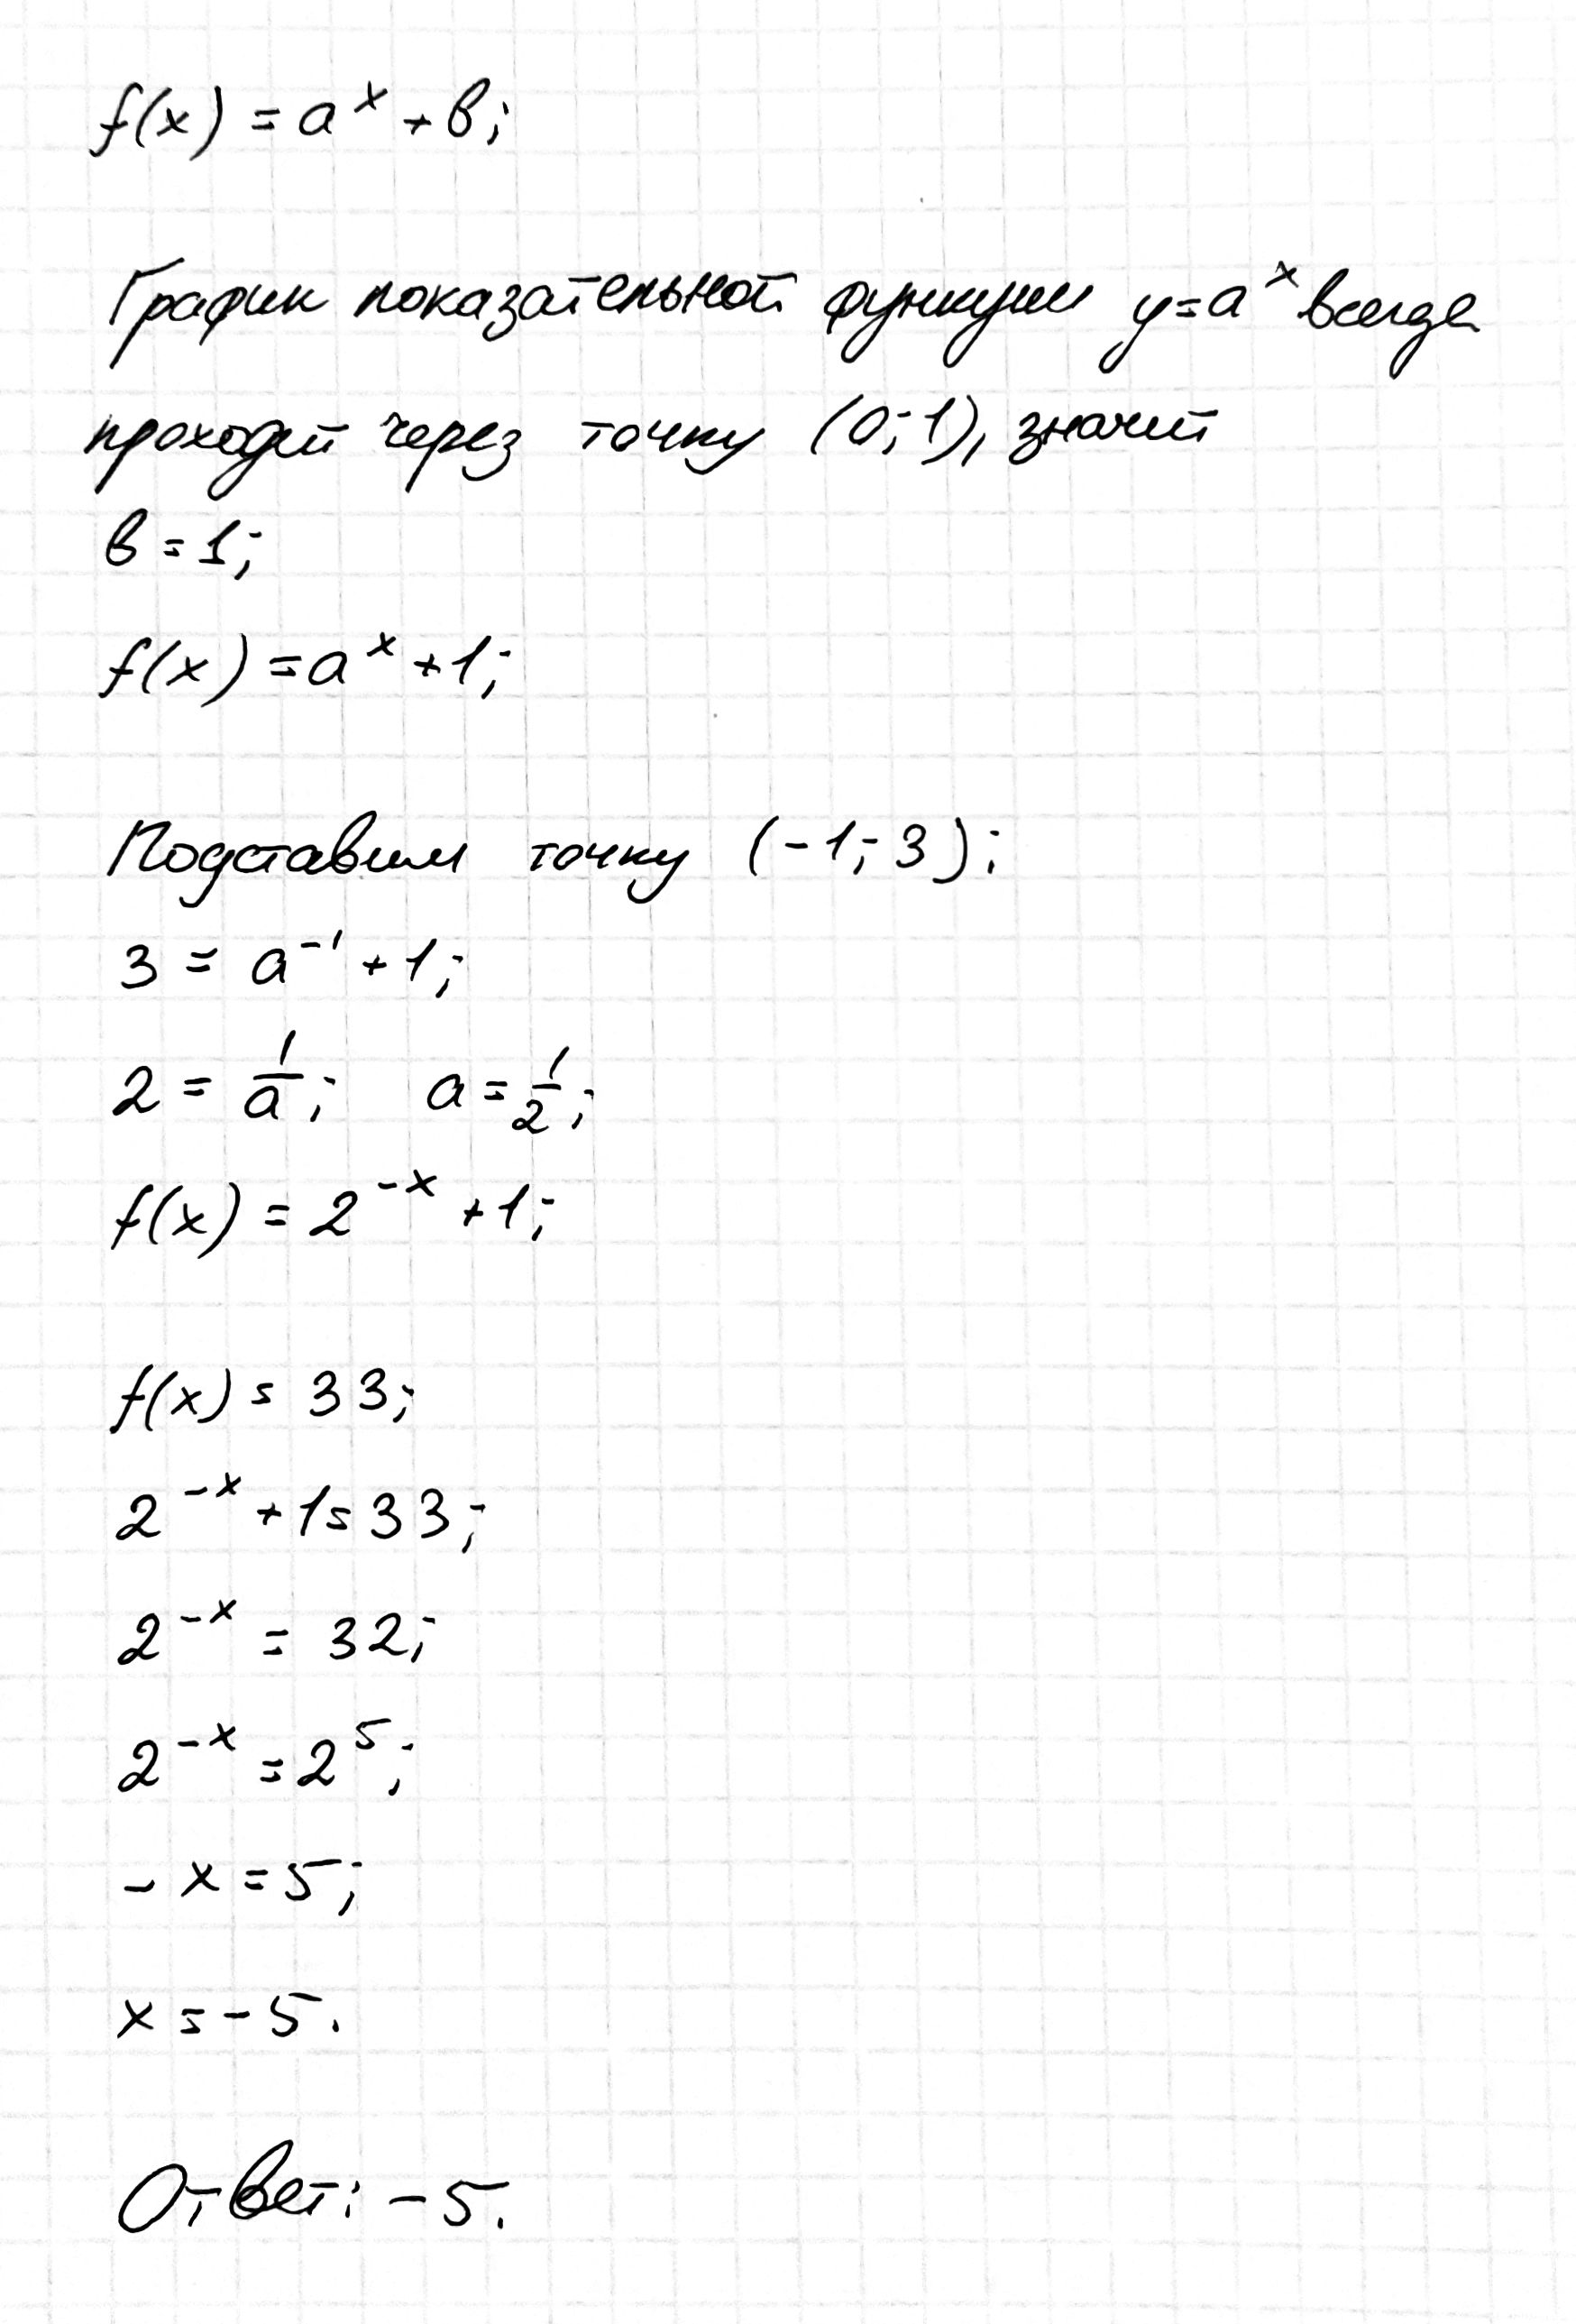 f(x) = a^x + b;
График показательной функции y = a^x всегда
проходит через точку (0; 1), значит
b = 1;
f(x) = a^x + 1;
Подставим точку (-1; 3):
3 = a^-1 + 1;
2 = 1/a; a = 1/2;
f(x) = 2^-x + 1;
f(x) = 33;
2^-x + 1 = 33;
2^-x = 32;
2^-x = 2^5;
- x = 5;
x = - 5.
Ответ: - 5.